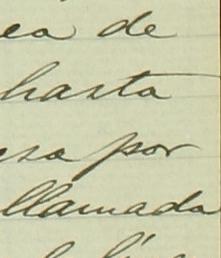 ea de
hasta
esa por
llamada